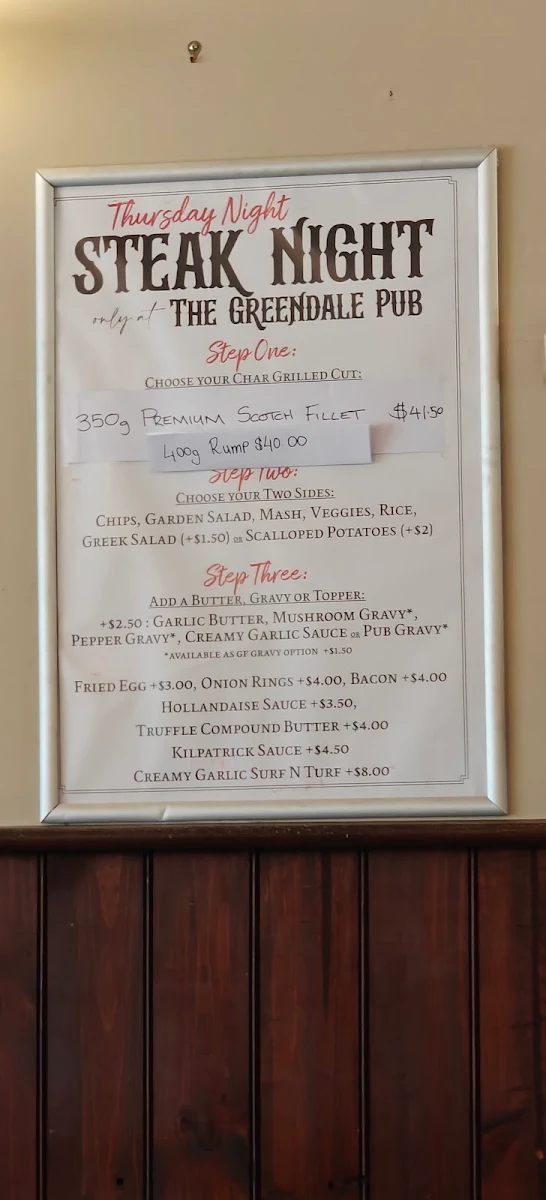 Thursday Night
STEAK NIGHT
only at THE GREENDALE PUB
Step One:
CHOOSE YOUR CHAR GRILLED CUT:
350g PREMIUM SCOTCH FILLET $41.50
400g Rump $40.00
Step Two:
CHOOSE YOUR TWO SIDES:
CHIPS, GARDEN SALAD, MASH, VEGGIES, RICE,
GREEK SALAD (+$1.50) OR SCALLOPED POTATOES (+$2)
Step Three:
ADD A BUTTER, GRAVY OR TOPPER:
+$2.50 : GARLIC BUTTER, MUSHROOM GRAVY*,
PEPPER GRAVY*, CREAMY GARLIC SAUCE OR PUB GRAVY*
*AVAILABLE AS GF GRAVY OPTION +$1.50
FRIED EGG +$3.00, ONION RINGS +$4.00, BACON +$4.00
HOLLANDAISE SAUCE +$3.50,
TRUFFLE COMPOUND BUTTER +$4.00
KILPATRICK SAUCE +$4.50
CREAMY GARLIC SURF N TURF +$8.00